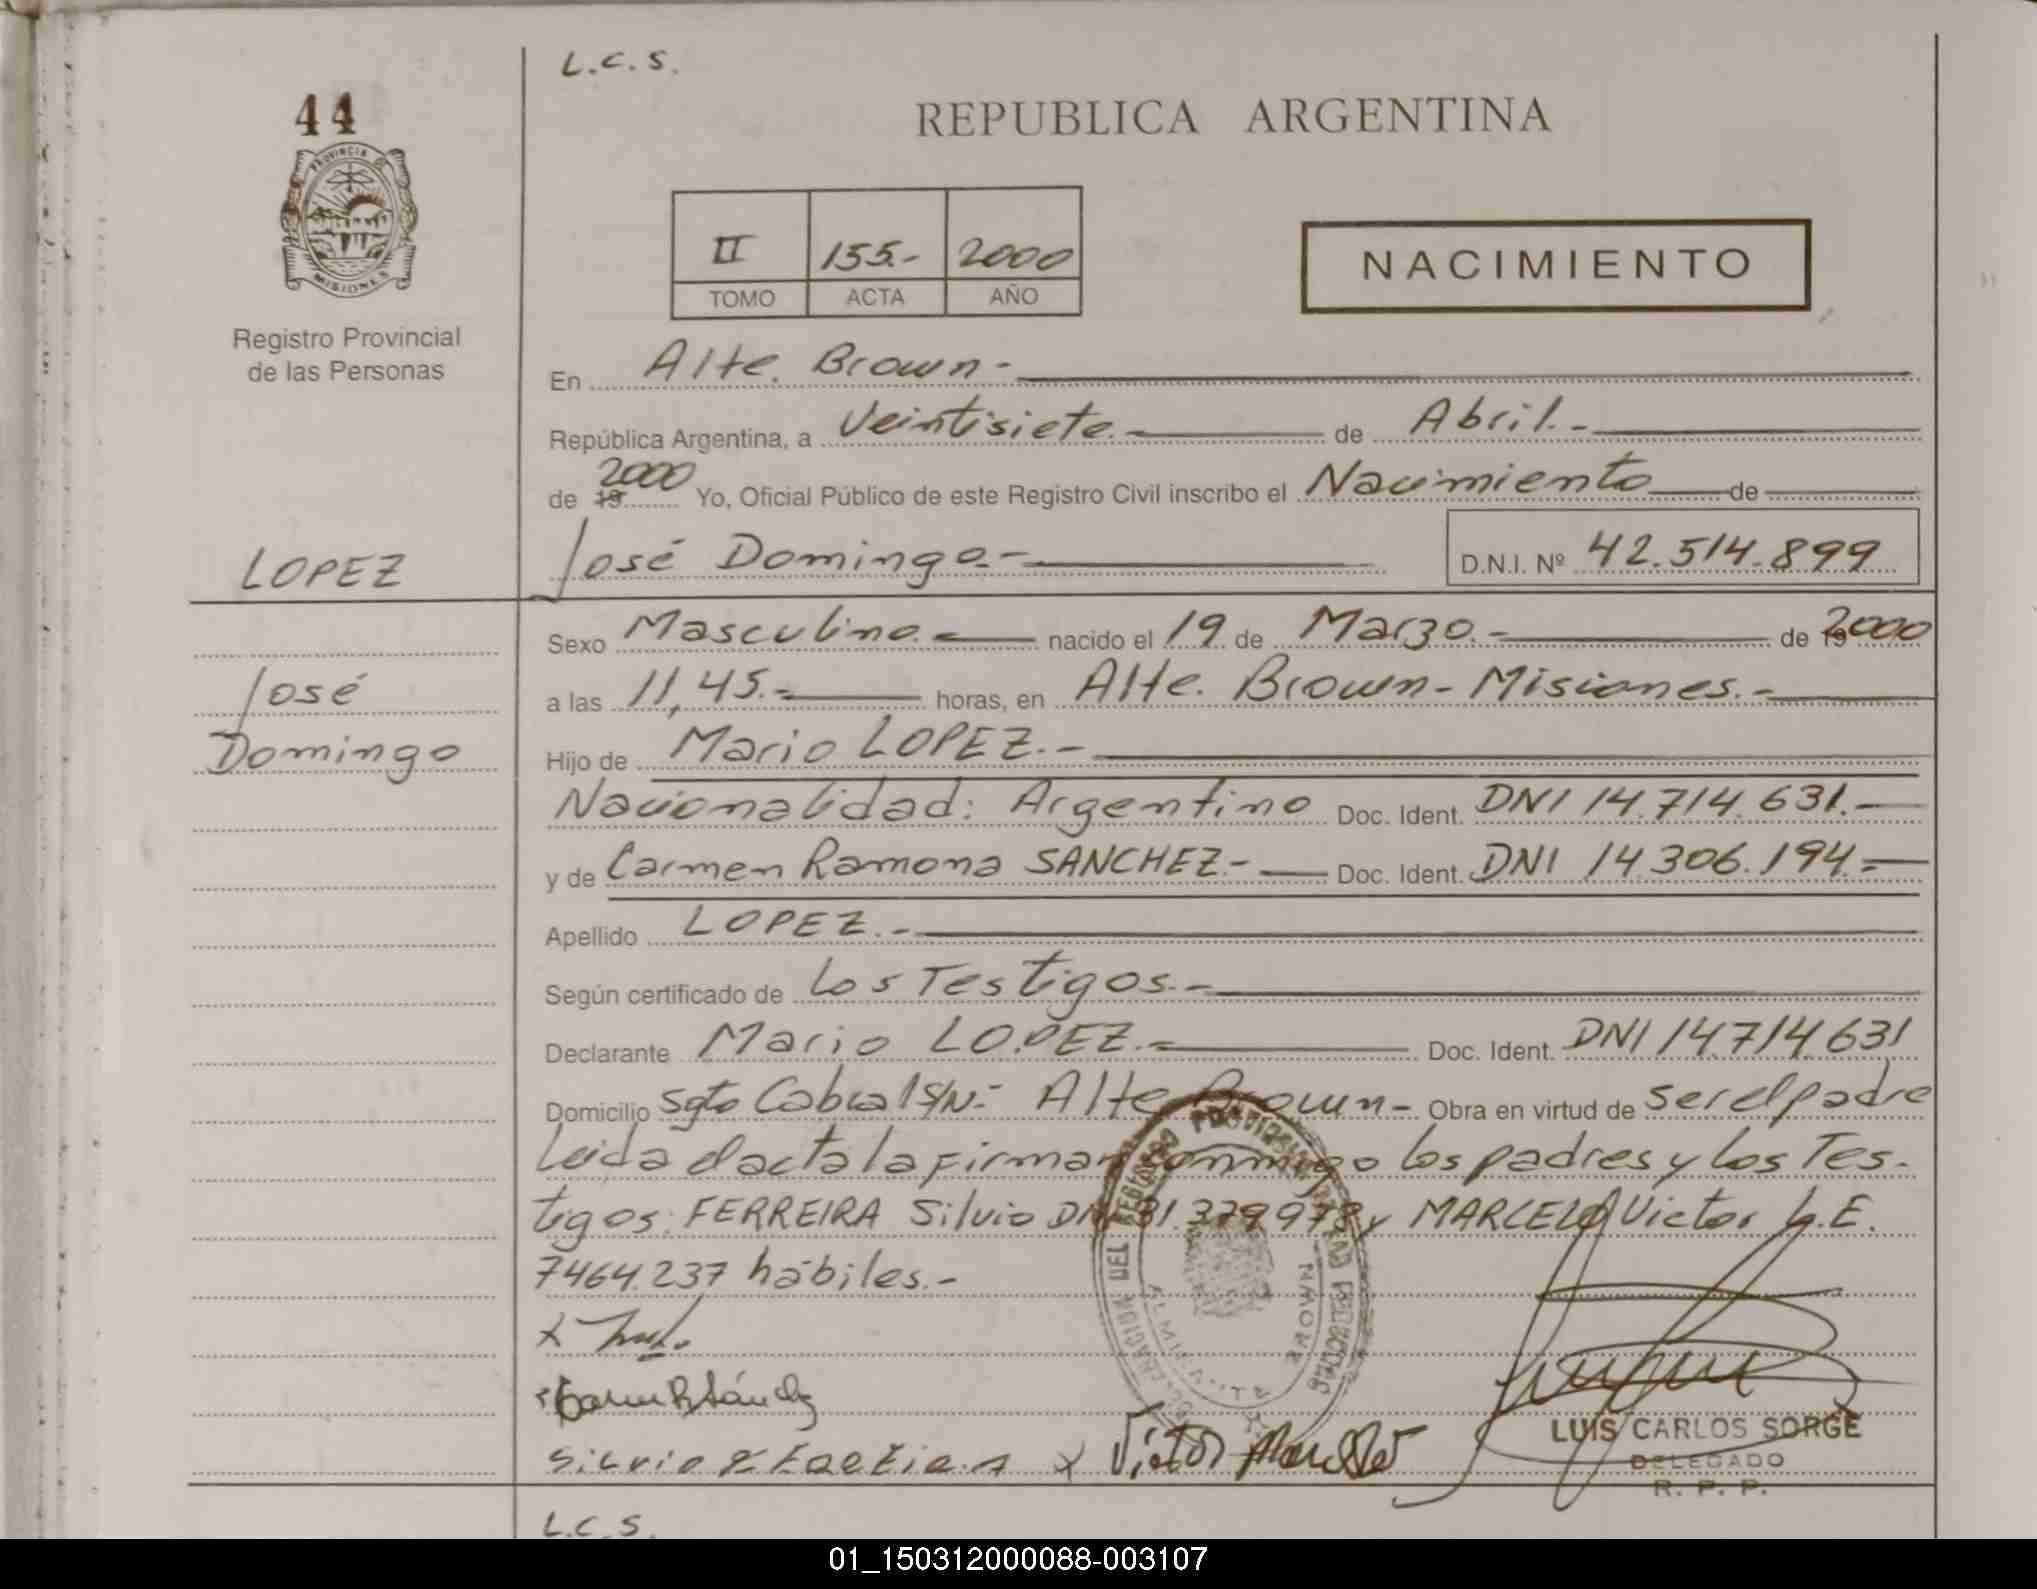 L.C.S.
44
REPUBLICA ARGENTINA
PROVINCIA DE
MISIONES
II 155.- 2000
TOMO ACTA AÑO
NACIMIENTO
Registro Provincial
de las Personas
En Alte. Brown-
República Argentina, a Veintisiete.- de Abril.-
de 19 2000 Yo, Oficial Público de este Registro Civil inscribo el Nacimiento de
LOPEZ
José Domingo.- D.N.I. Nº 42.514.899
Sexo Masculino.- nacido el 19 de Marzo.- de 19 2000
José
a las 11,45.- horas, en Alte. Brown-Misiones.-
Domingo
Hijo de Mario LOPEZ.-
Nacionalidad: Argentino Doc. Ident. DNI 14.714.631.-
y de Carmen Ramona SANCHEZ- Doc. Ident. DNI 14.306.194.-
Apellido LOPEZ.-
Según certificado de los Testigos.-
Declarante Mario LOPEZ.- Doc. Ident. DNI 14.714.631
Domicilio Sgto Cabral S/N.- Alte Brown- Obra en virtud de ser el padre
Leida el acta la firman conmigo los padres y los Tes-
tigos: FERREIRA Silvio DNI 31.379.978 y MARCELO Victor L.E.
7464.237 hábiles.-
Victor
LUIS CARLOS SORGE
DELEGADO
R. P. P.
L.C.S.
01_150312000088-003107